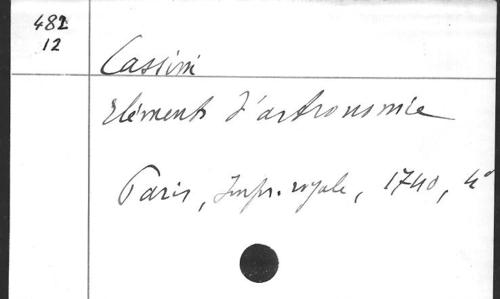 482
12
Cassini
Eléments d'astronomie
Paris, Impr. royale, 1740, 4°